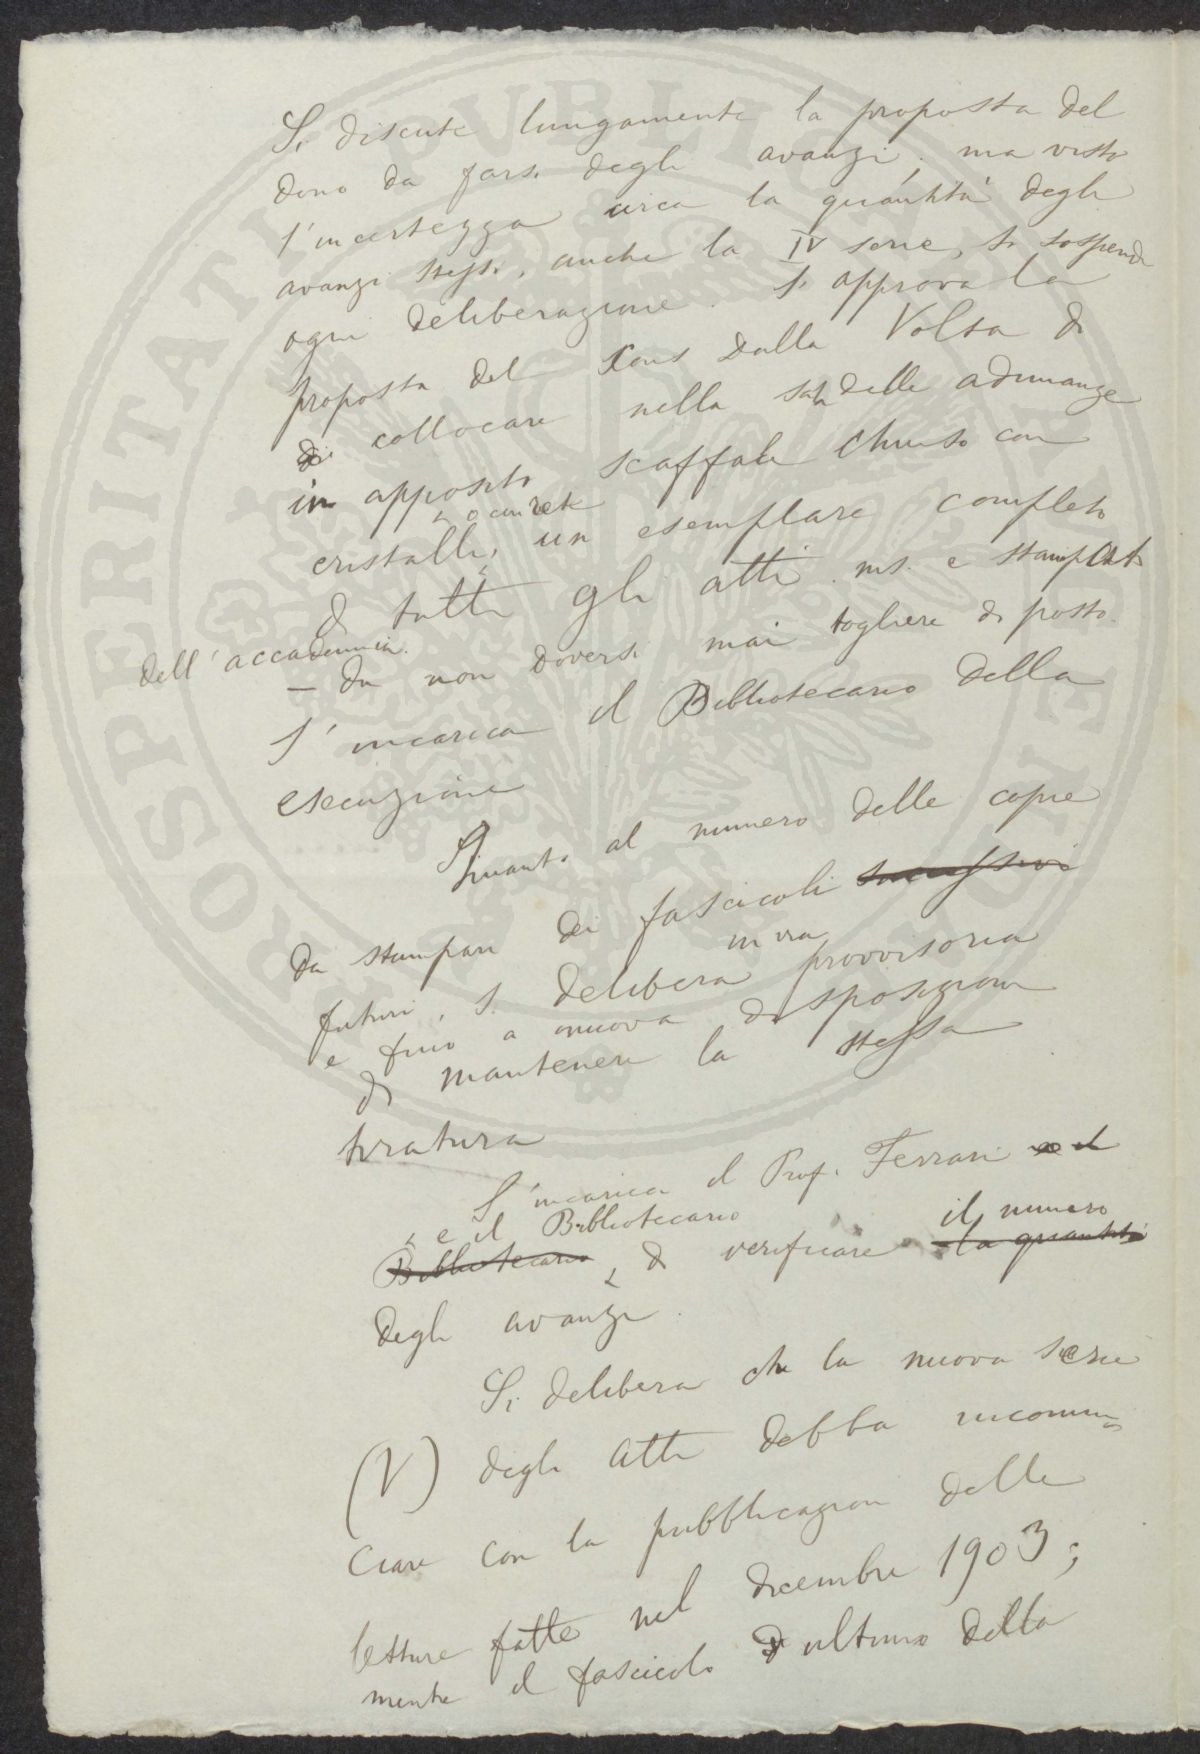 Si discute lungamente la proposta del
dono da farsi degli avanzi. ma visto
l'incertezza circa la quantità degli
avanzi stessi, anche la IV serie, si sospende
ogni deliberazione. Si approva la
proposta del Cons Dalla Volta di
di collocare nella sala delle adunanze
in apposito scaffale chiuso con
o con rete
cristalli, un esemplare completo
di tutti gli atti ms. e stampati
dell'accademia.
— da non doversi mai togliere di posto.
S'incarica il Bibliotecario della
esecuzione
Quanto al numero delle copie
da stampare dei fascicoli successivi
in via
futuri, si delibera provvisoria
e fino a nuova disposizione
di mantenere la stessa
tiratura
S'incarica il Prof. Ferrari e il
e il Bibliotecario il numero
Bibliotecario di verificare la quantità
degli avanzi.
Si delibera che la nuova serie
(V) degli Atti debba incomin=
ciare con la pubblicazione delle
letture fatte nel dicembre 1903;
mentre il fascicolo ultimo della